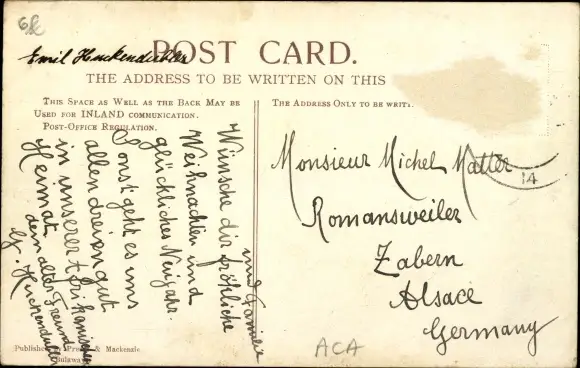 6K
Emil Huckendubler
POST CARD.
THE ADDRESS TO BE WRITTEN ON THIS
THIS SPACE AS WELL AS THE BACK MAY BE
USED FOR INLAND COMMUNICATION.
POST-OFFICE REGULATION.
THE ADDRESS ONLY TO BE WRIT
Wünsche dir fröhliche
und Familie
Weihnachten und
glückliches Neujahr.
Sonst geht es uns
allen dreien gut
in unserer Afrikanischen
Heimat.
dein alter Freund
G. Huckendubler
Monsieur Michel Matter
Romansweiler
Zabern
Alsace
Germany
14
ACA
Publishe by & Mackenzie
ulaway